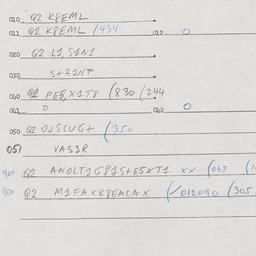 010 Q2 K8EML
011 Q2 K8EML /434 012 0
020 Q2 L1, S1N1
030 S+R1NT
040 Q2 PE5, X1T8 (830 /244
041 0 042 0
050 Q2 OJSCUG+ (350
051 VAS3R
900 Q2 ANOLT1G81S+E5XT1 XX (067
900 Q2 M1FAXK8EMCAX (/012090 (305